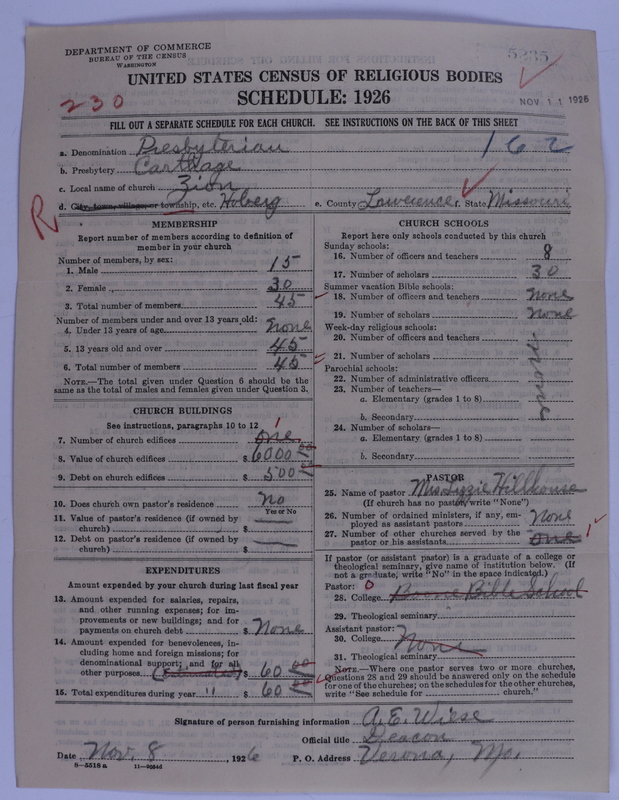 DEPARTMENT OF COMMERCE
BUREAU OF THE CENSUS
WASHINGTON
5235
UNITED STATES CENSUS OF RELIGIOUS BODIES
SCHEDULE: 1926
230
NOV 11 1926
FILL OUT A SEPARATE SCHEDULE FOR EACH CHURCH. SEE INSTRUCTIONS ON THE BACK OF THIS SHEET
a. Denomination Presbyterian
162
b. Presbytery Carthage
c. Local name of church Zion
d. City, town, village, or township, etc. Holberg e. County Lawrence f. State Missouri
R
MEMBERSHIP
Report number of members according to definition of
member in your church
Number of members, by sex:
1. Male 15
2. Female 30
3. Total number of members 45
Number of members under and over 13 years old:
4. Under 13 years of age None
5. 13 years old and over 45
6. Total number of members 45
NOTE.—The total given under Question 6 should be the
same as the total of males and females given under Question 3.
CHURCH BUILDINGS
See instructions, paragraphs 10 to 12
7. Number of church edifices one 1
8. Value of church edifices $ 6000 00
9. Debt on church edifices $ 500
10. Does church own pastor's residence No
Yes or No
11. Value of pastor's residence (if owned by
church) $
12. Debt on pastor's residence (if owned by
church) $
EXPENDITURES
Amount expended by your church during last fiscal year
13. Amount expended for salaries, repairs,
and other running expenses; for im-
provements or new buildings; and for
payments on church debt $ None
14. Amount expended for benevolences, in-
cluding home and foreign missions; for
denominational support; and for all
other purposes (Estimated) $ 60 00
15. Total expenditures during year " $ 60 00
CHURCH SCHOOLS
Report here only schools conducted by this church
Sunday schools:
16. Number of officers and teachers 8
17. Number of scholars 30
Summer vacation Bible schools:
18. Number of officers and teachers None
19. Number of scholars None
Week-day religious schools:
20. Number of officers and teachers
21. Number of scholars
Parochial schools:
22. Number of administrative officers
23. Number of teachers—
a. Elementary (grades 1 to 8)
b. Secondary
None
24. Number of scholars—
a. Elementary (grades 1 to 8)
b. Secondary
PASTOR
25. Name of pastor Mrs Lizzie Hillhouse
(If church has no pastor, write "None")
26. Number of ordained ministers, if any, em-
ployed as assistant pastors None
27. Number of other churches served by the
pastor or his assistants one 1
If pastor (or assistant pastor) is a graduate of a college or
theological seminary, give name of institution below. (If
not a graduate, write "No" in the space indicated.)
Pastor: 0
28. College Bible School
29. Theological seminary
Assistant pastor:
30. College None
31. Theological seminary
NOTE.—Where one pastor serves two or more churches,
Questions 28 and 29 should be answered only on the schedule
for one of the churches; on the schedules for the other churches,
write "See schedule for church."
Signature of person furnishing information A. E. Wiese
Official title Deacon
Date Nov. 8, 1926 P. O. Address Verona, Mo.
8—5518 a 11—9564d